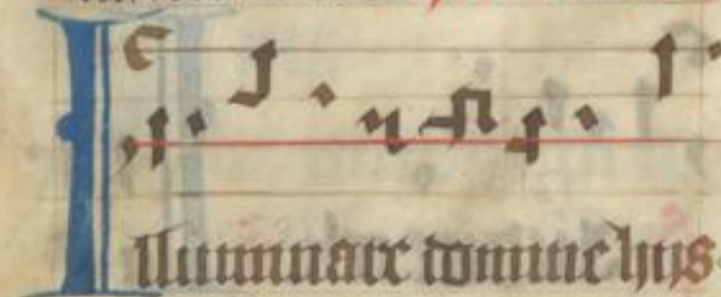 Illuminare domine hys